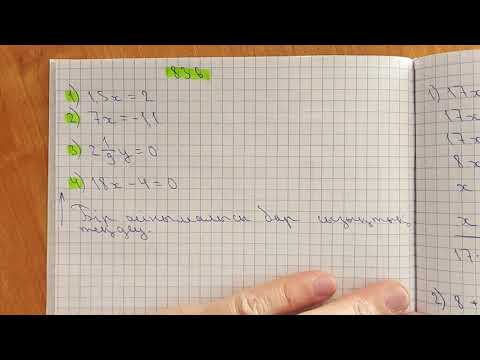 836
1) 15x = 2
2) 7x = -11
3) 2 1/9 y = 0
4) 18x - 4 = 0
Бір айнымалысы бар сызықтық
теңдеу.
1) 17x
17x
17x
8x
x
x
17.
2) 8 +